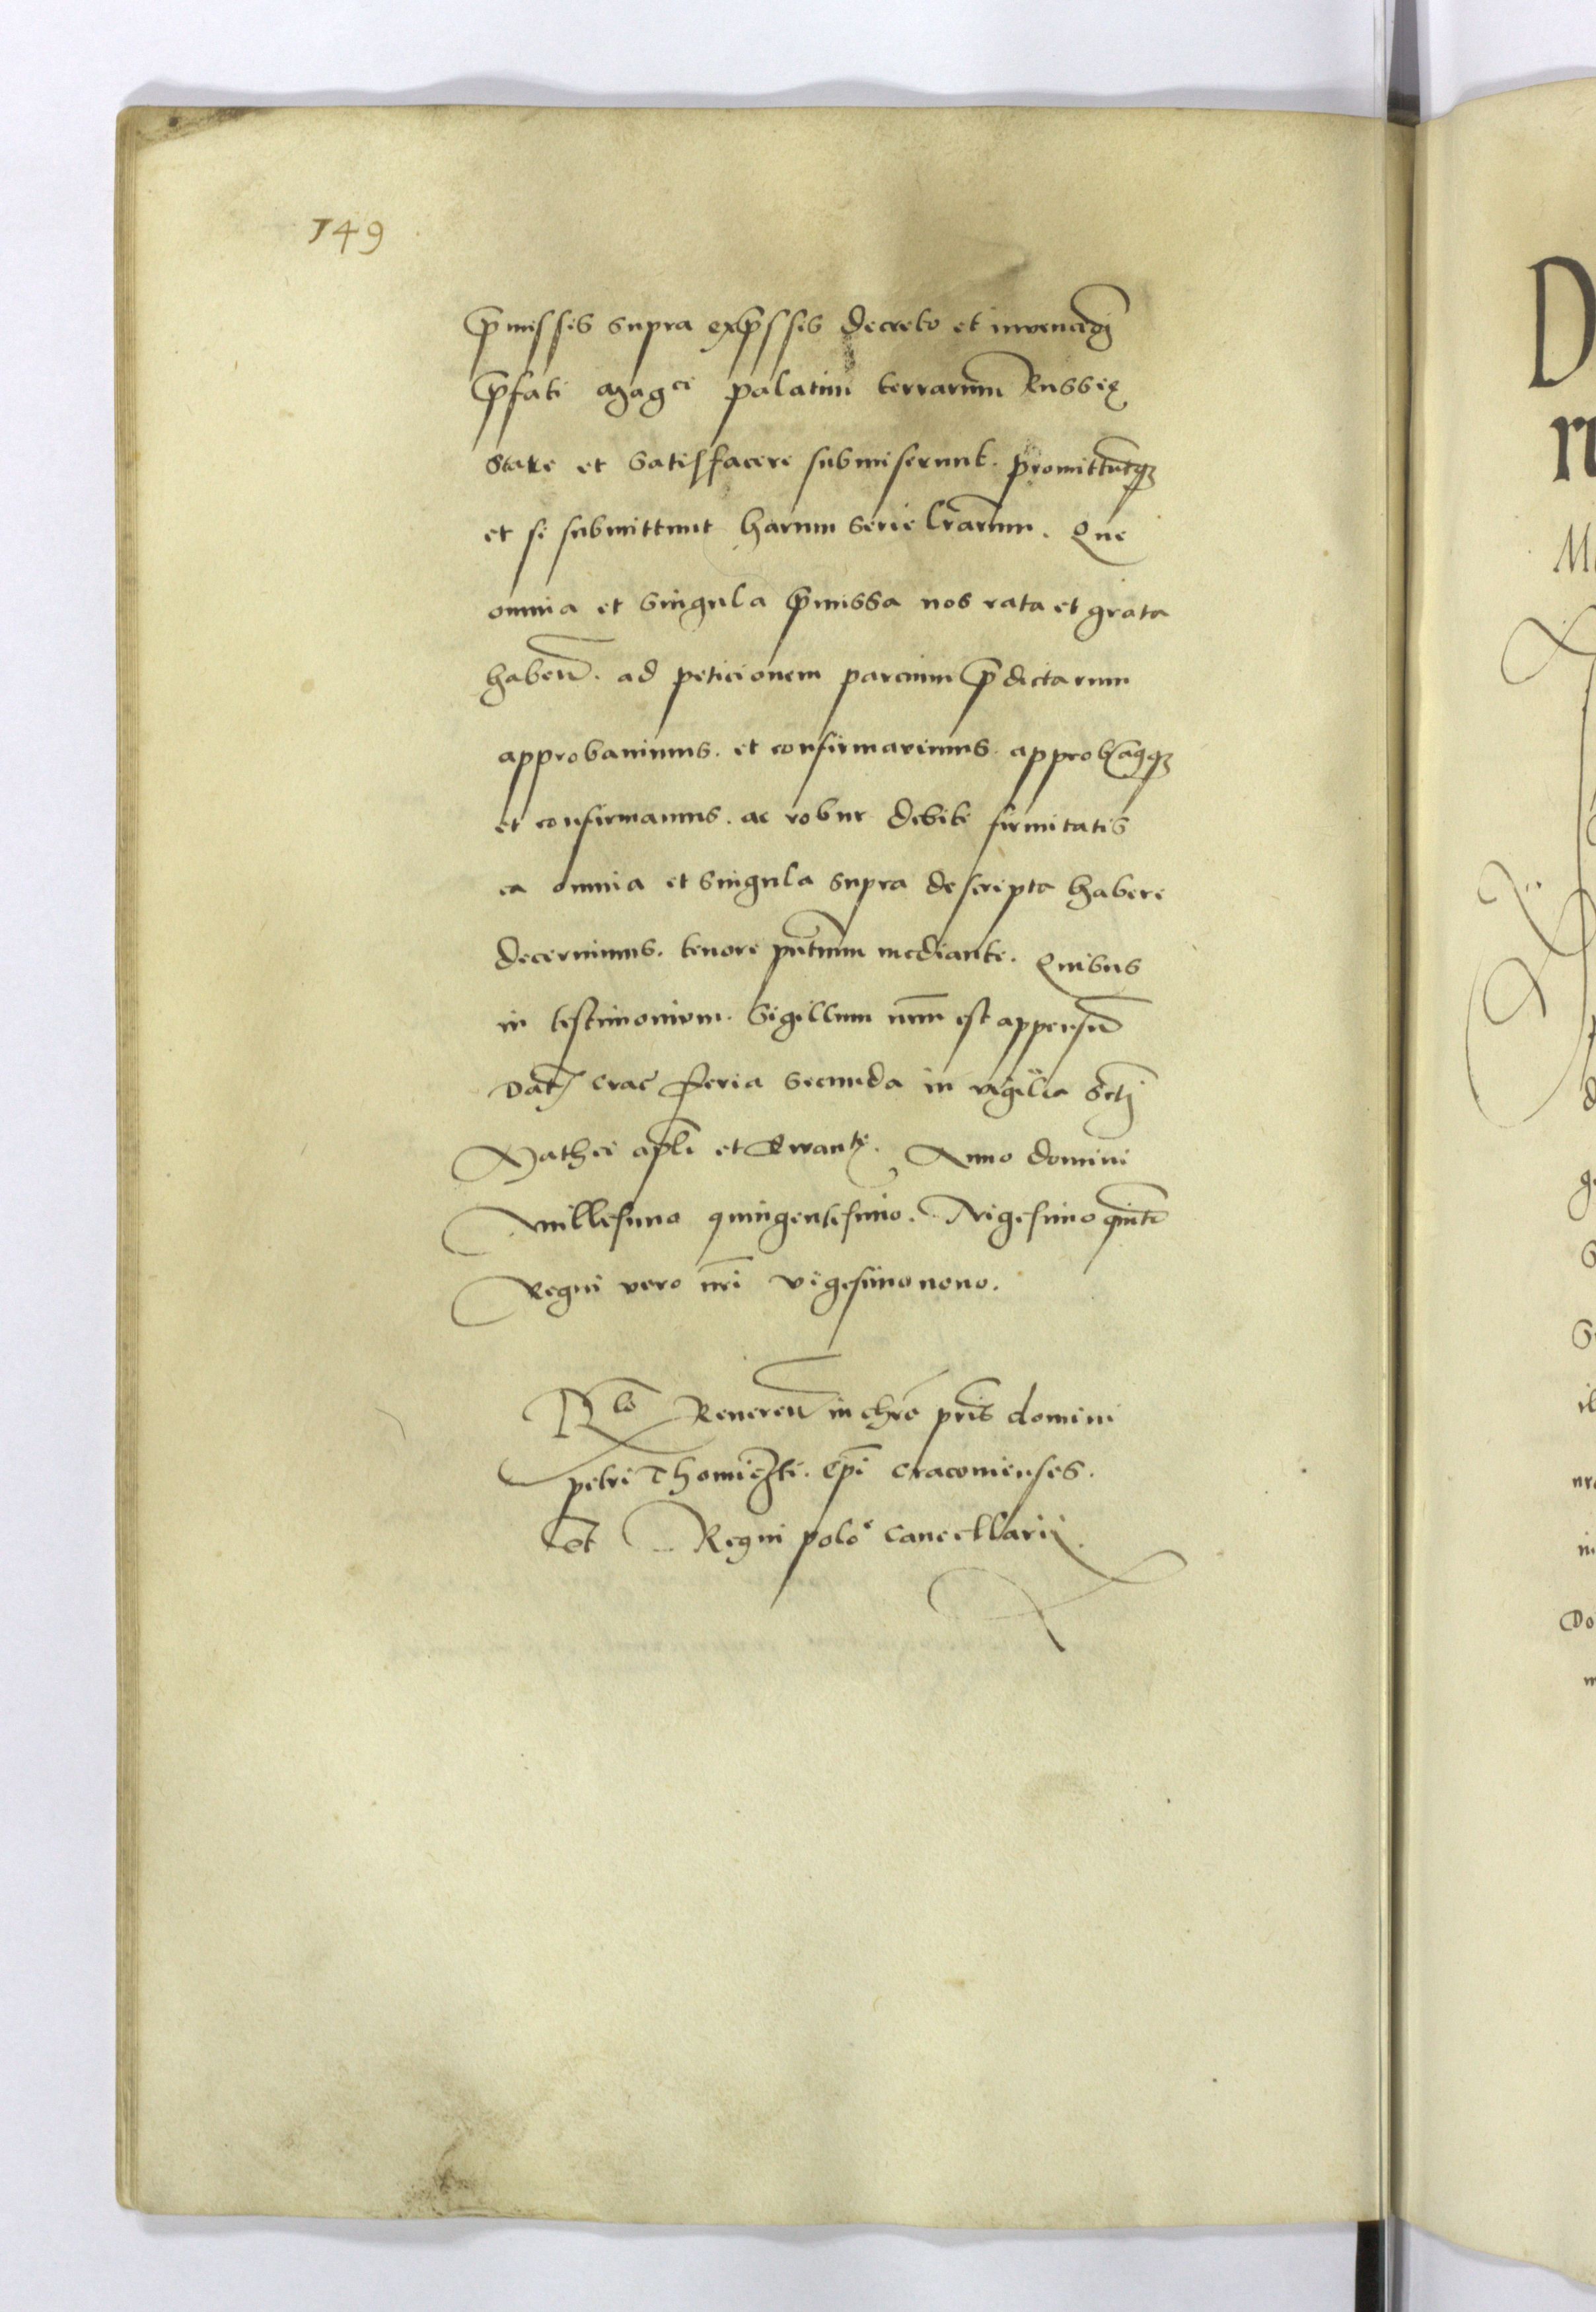 149
p̄missis supra exp̄ssis decreto et invencōi
p̄fati Magci palatini terrarum Russię
stare et satisfacere submiserunt. promittūtqꝫ
et se submittunt harum serie lrārum. Que
omnia et singula p̄missa nos rata et grata
haben̄. ad peticionem parcium p̄dictarum
approbavimus. et confirmavimus. approbamqꝫ
et confirmamus. ac robur debite firmitatis
ea omnia et singula supra descripta habere
decernimus. tenore pn̄tium mediante. Quibus
in testimonium. Sigillum nr̄m est appensū
Dat̄ Crac̄ feria secunda in vigilia Scti
Mathei apl̄i et Ewan. Anno domini
Millesimo quingentesimo. Vigesimo quīto
Regni vero nr̄i vigesimonono.
Rlo Reveren̄ in chrō pr̄is domini
petri Thomiczki. Ep̄i Cracoviensis.
Et Regni polōe Cancellarii.
D
M